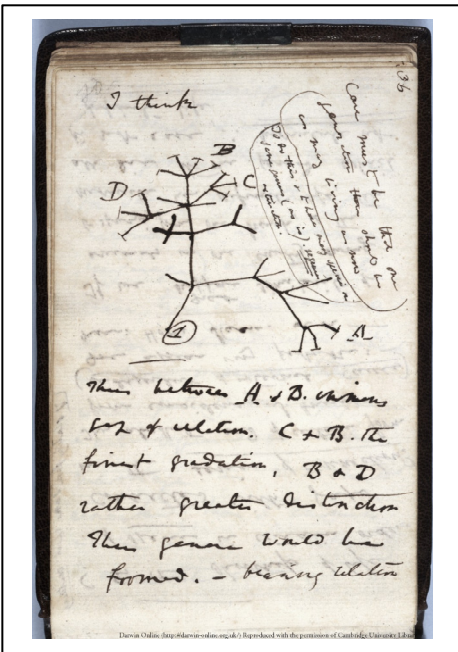 36
I think
Case must be that one
generation then should be
as many living as now
To do this & to have many species in
same genus (as is) requires
extinction.
B
C
D
A
1
Thus between A & B. immense
gap of relation. C & B. the
finest gradation, B & D
rather greater distinction
Thus genera would be
formed. — bearing relation
Darwin Online (http://darwin-online.org.uk/) Reproduced with the permission of Cambridge University